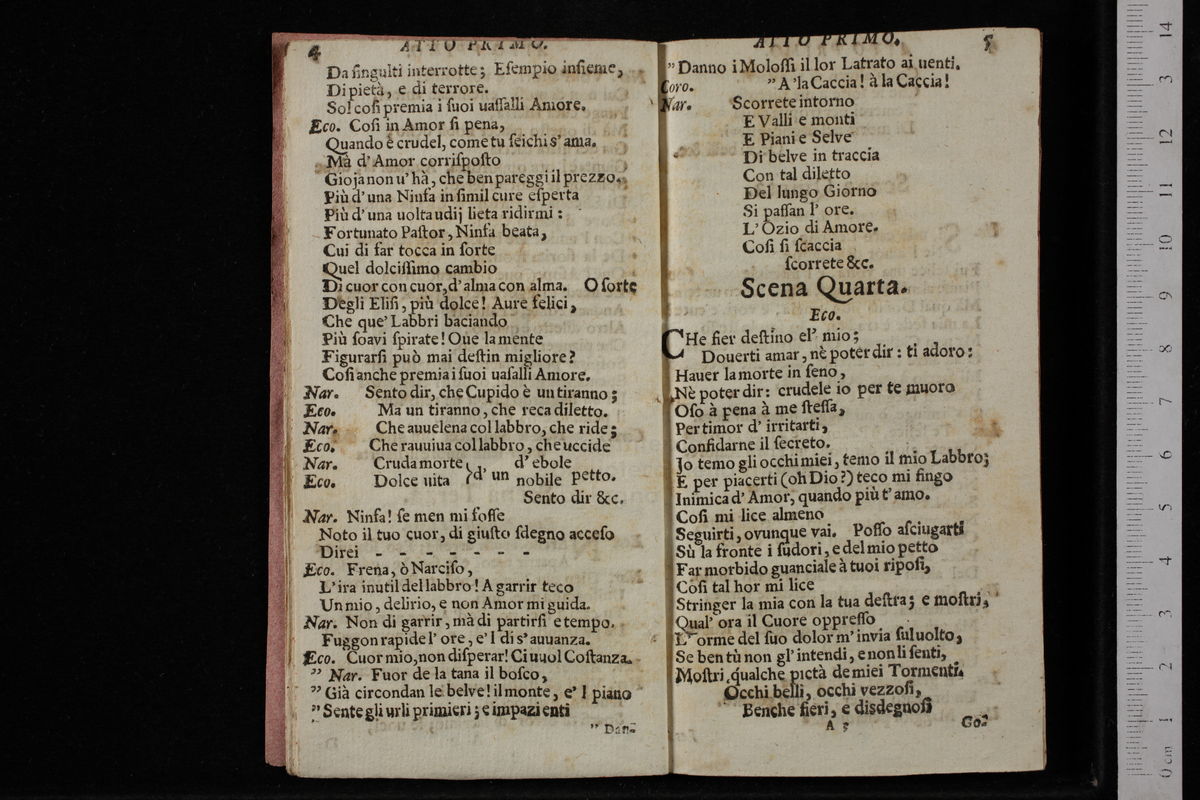 4 ATTO PRIMO.
Da ſingulti interrotte; Eſempio inſieme,
Di pietà, e di terrore.
Sol coſi premia i ſuoi uaſſalli Amore.
Eco. Coſi in Amor ſi pena,
Quando è crudel, come tu ſei chi s' ama.
Mà d' Amor corriſpoſto
Gioja non u' hà, che ben pareggi il prezzo.
Più d' una Ninfa in ſimil cure eſperta
Più d' una uolta udij lieta ridirmi:
Fortunato Paſtor, Ninfa beata,
Cui di far tocca in ſorte
Quel dolciſſimo cambio
Di cuor con cuor, d' alma con alma. O ſorte
Degli Eliſi, più dolce! Aure felici,
Che que' Labbri baciando
Più ſoavi ſpirate! Oue la mente
Figurarſi può mai deſtin migliore?
Coſi anche premia i ſuoi uaſalli Amore.
Nar. Sento dir, che Cupido è un tiranno;
Eco. Ma un tiranno, che reca diletto.
Nar. Che auuelena col labbro, che ride;
Eco. Che rauuiua col labbro, che uccide
Nar. Cruda morte d' ebole
Eco. Dolce uita d' un nobile petto.
Sento dir &c.
Nar. Ninfa! ſe men mi foſſe
Noto il tuo cuor, di giuſto ſdegno acceſo
Direi - - - - - - -
Eco. Frena, ò Narciſo,
L' ira inutil del labbro! A garrir teco
Un mio, delirio, e non Amor mi guida.
Nar. Non di garrir, mà di partirſi e tempo.
Fuggon rapide l' ore, e' l di s' auuanza.
Eco. Cuor mio, non diſperar! Ci uuol Coſtanza.
" Nar. Fuor de la tana il boſco,
" Già circondan le belve! il monte, e' l piano
" Sente gli urli primieri; e impazienti
" Dan-
ATTO PRIMO. 5
" Danno i Moloſſi il lor Latrato ai uenti.
Coro. " A 'la Caccia! à la Caccia!
Nar. Scorrete intorno
E Valli e monti
E Piani e Selve
Di belve in traccia
Con tal diletto
Del lungo Giorno
Si paſſan l' ore.
L' Ozio di Amore.
Coſi ſi ſcaccia
ſcorrete &c.
Scena Quarta.
Eco.
CHe fier deſtino el' mio;
Douerti amar, nè poter dir: ti adoro:
Hauer la morte in ſeno,
Nè poter dir: crudele io per te muoro
Oſo à pena à me ſteſſa,
Per timor d' irritarti,
Confidarne il ſecreto.
Jo temo gli occhi miei, temo il mio Labbro;
E per piacerti (oh Dio?) teco mi fingo
Inimica d' Amor, quando più t' amo.
Coſi mi lice almeno
Seguirti, ovunque vai. Poſſo aſciugarti
Sù la fronte i ſudori, e del mio petto
Far morbido guanciale à tuoi ripoſi,
Coſi tal hor mi lice
Stringer la mia con la tua deſtra; e moſtri,
Qual' ora il Cuore oppreſſo
L' orme del ſuo dolor m' invia ſul uolto,
Se ben tù non gl' intendi, e non li ſenti,
Moſtri, qualche pietà de miei Tormenti.
Occhi belli, occhi vezzoſi,
Benche fieri, e disdegnoſi
A 3 Go-